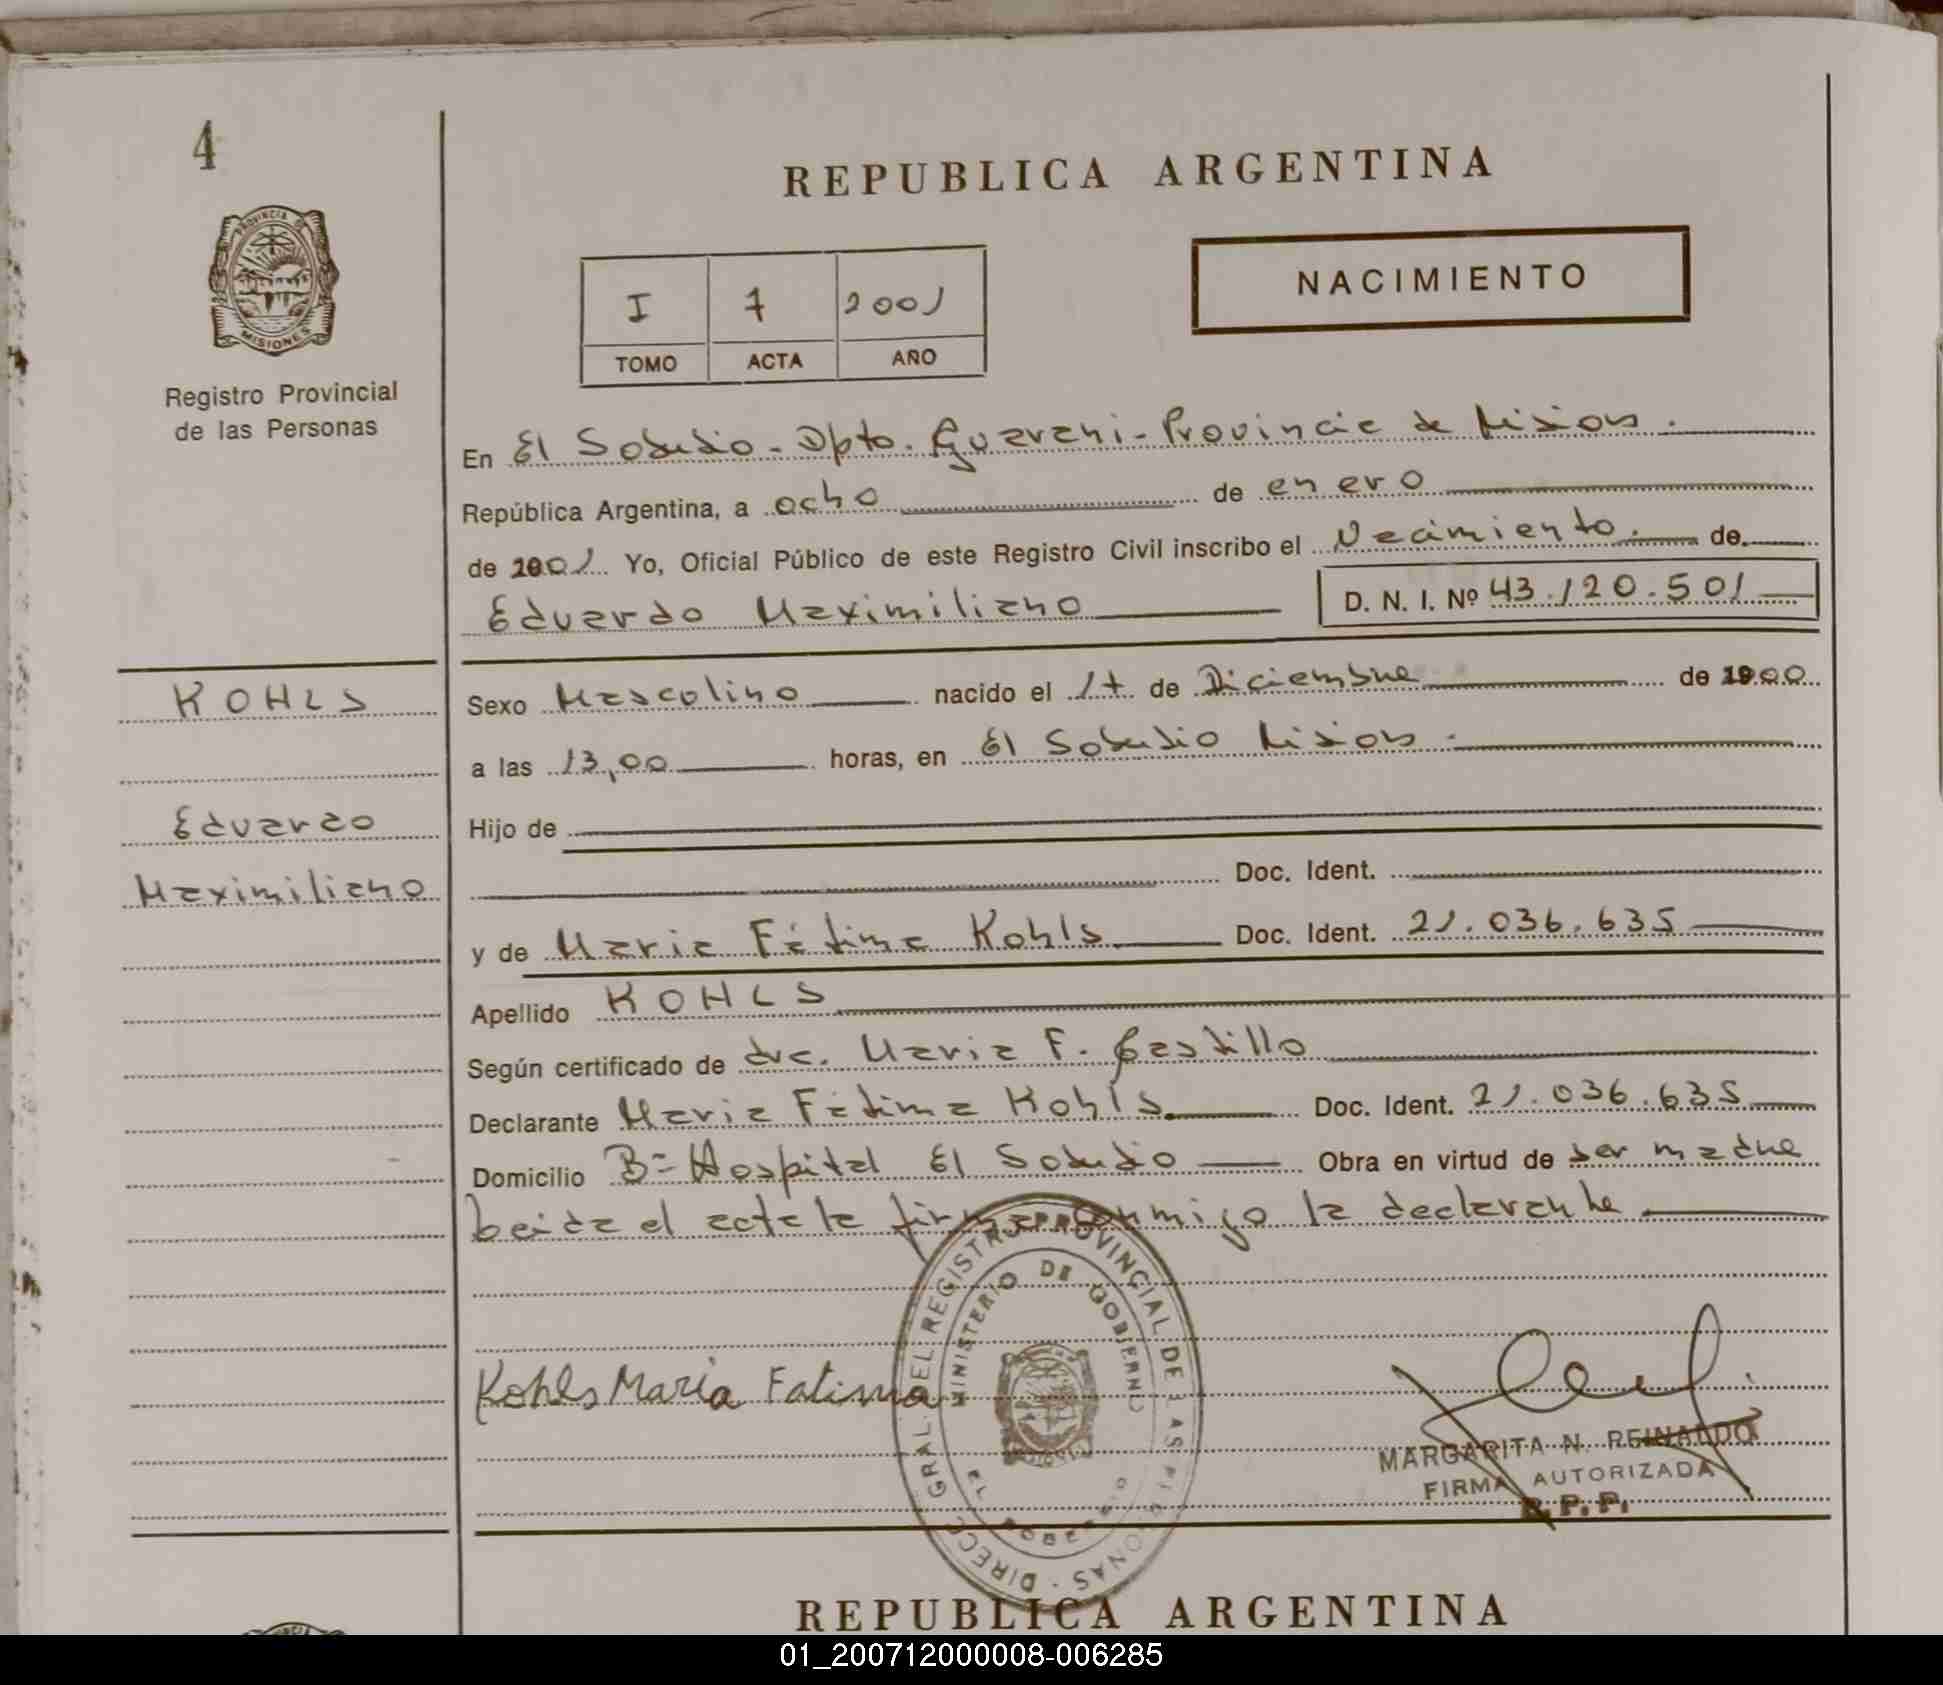 4
REPUBLICA ARGENTINA
PROVINCIA DE
MISIONES
NACIMIENTO
I 7 2001
TOMO ACTA AÑO
Registro Provincial
de las Personas
En El Soberbio - Dpto. Guarani - Provincia de Misiones.
República Argentina, a ocho de enero
de 2001 Yo, Oficial Público de este Registro Civil inscribo el Nacimiento. de
Eduardo Maximiliano D. N. I. Nº 43.120.501
KOHLS
Sexo Masculino nacido el 17 de Diciembre de 2000
a las 13,00 horas, en El Soberbio Misiones.
Eduardo
Hijo de
Maximiliano
Doc. Ident.
y de Maria Fátima Kohls Doc. Ident. 21.036.635
Apellido KOHLS
Según certificado de dra. Maria F. Castillo
Declarante Maria Fátima Kohls Doc. Ident. 21.036.635
Domicilio Bº Hospital El Soberbio Obra en virtud de ser madre
Leida el acta la firma conmigo la declarante
DIRECC. GRAL. DEL REGISTRO PROVINCIAL DE LAS PERSONAS
MINISTERIO DE GOBIERNO
EL SOBERBIO
Kohls Maria Fatima
MARGARITA N. REINALDO
FIRMA AUTORIZADA
R.P.P.
REPUBLICA ARGENTINA
01_200712000008-006285